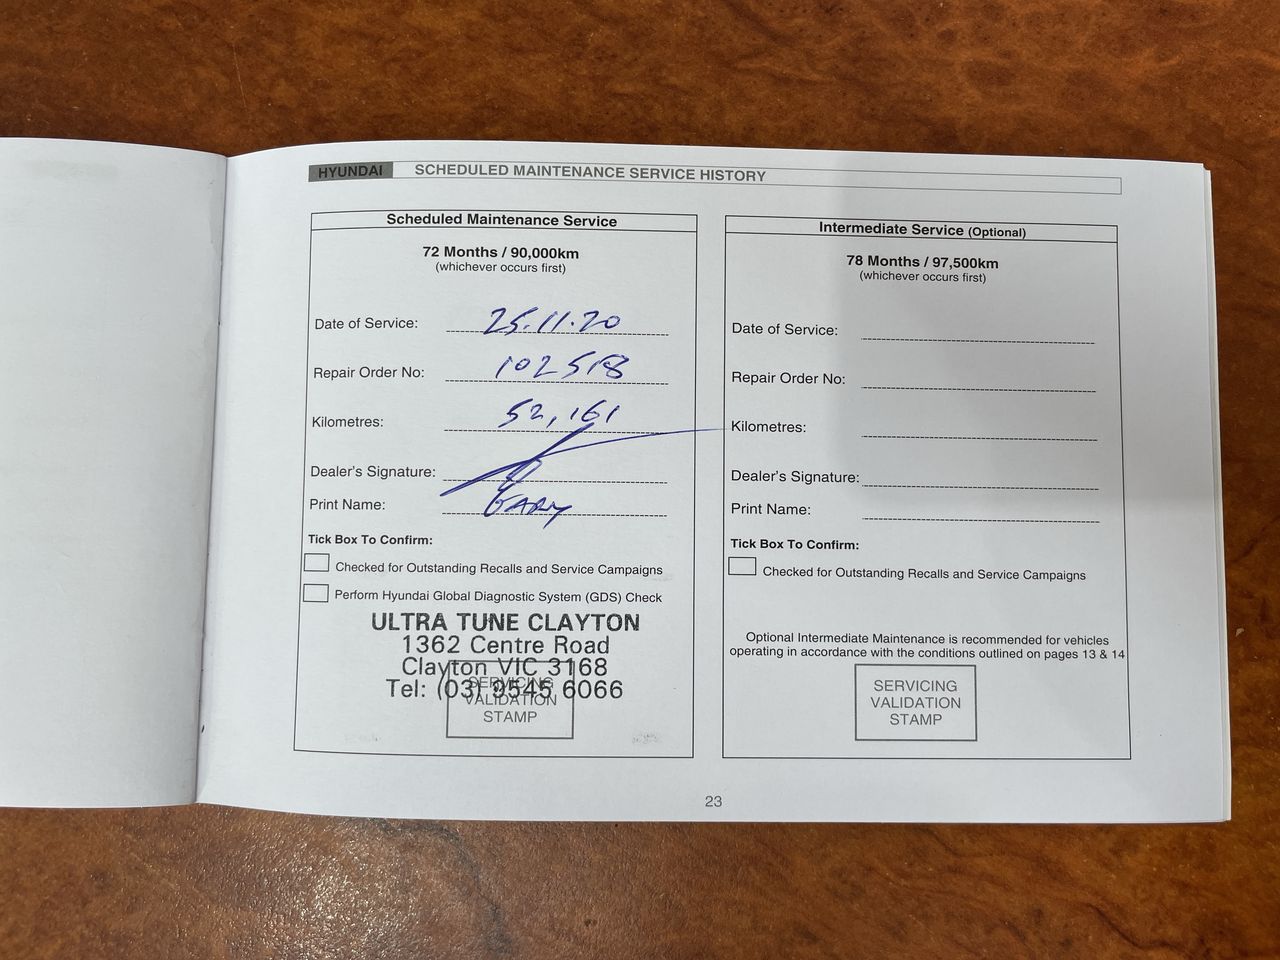 HYUNDAI SCHEDULED MAINTENANCE SERVICE HISTORY
Scheduled Maintenance Service
72 Months / 90,000km
(whichever occurs first)
Date of Service: 25.11.20
Repair Order No: 102518
Kilometres: 52,161
Dealer's Signature:
Print Name: GARY
Tick Box To Confirm:
Checked for Outstanding Recalls and Service Campaigns
Perform Hyundai Global Diagnostic System (GDS) Check
ULTRA TUNE CLAYTON
1362 Centre Road
Clayton VIC 3168
Tel: (03) 9545 6066
SERVICING
VALIDATION
STAMP
Intermediate Service (Optional)
78 Months / 97,500km
(whichever occurs first)
Date of Service:
Repair Order No:
Kilometres:
Dealer's Signature:
Print Name:
Tick Box To Confirm:
Checked for Outstanding Recalls and Service Campaigns
Optional Intermediate Maintenance is recommended for vehicles
operating in accordance with the conditions outlined on pages 13 & 14
SERVICING
VALIDATION
STAMP
23